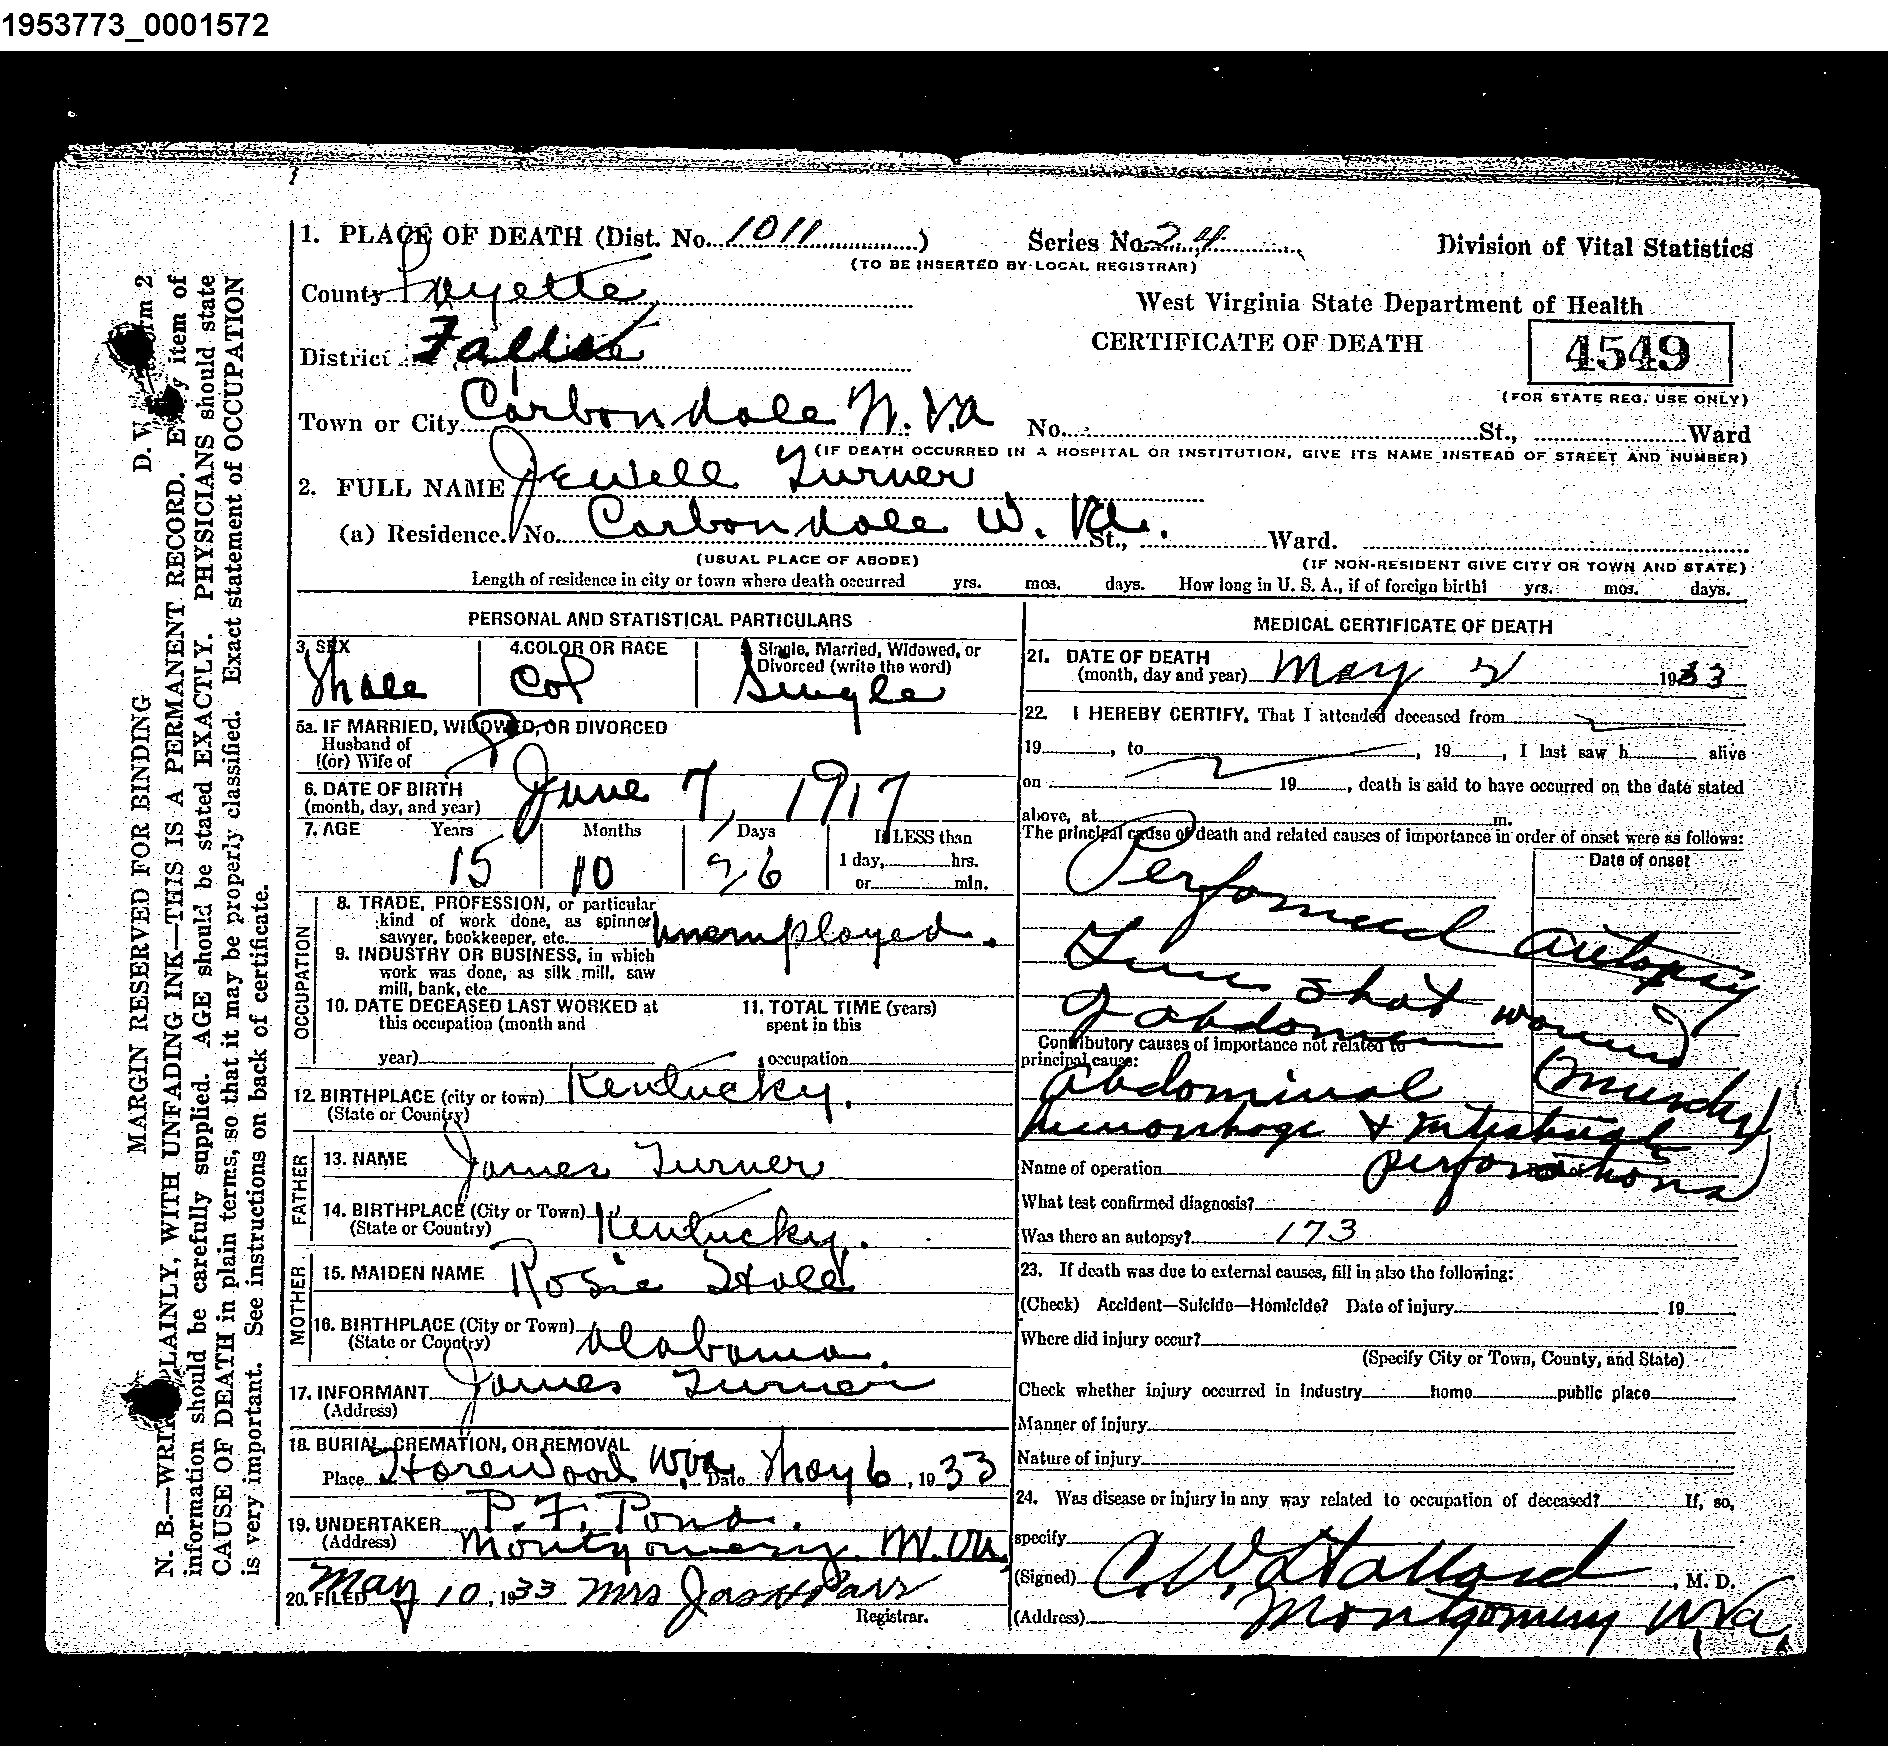 1953773_0001572
1. PLACE OF DEATH (Dist. No. 1011) Series No. 24 Division of Vital Statistics
(TO BE INSERTED BY LOCAL REGISTRAR)
County Fayette West Virginia State Department of Health
District Falls CERTIFICATE OF DEATH 4549
(FOR STATE REG. USE ONLY)
Town or City Carbondale W. Va No. St., Ward
(IF DEATH OCCURRED IN A HOSPITAL OR INSTITUTION, GIVE ITS NAME INSTEAD OF STREET AND NUMBER)
2. FULL NAME Jewell Turner
(a) Residence. No. Carbondale W. Va. St., Ward.
(USUAL PLACE OF ABODE) (IF NON-RESIDENT GIVE CITY OR TOWN AND STATE)
Length of residence in city or town where death occurred yrs. mos. days. How long in U. S. A., if of foreign birth! yrs. mos. days.
PERSONAL AND STATISTICAL PARTICULARS
3. SEX 4. COLOR OR RACE Single, Married, Widowed, or
Divorced (write the word)
Male Col Single
5a. IF MARRIED, WIDOWED, OR DIVORCED
Husband of
(or) Wife of
6. DATE OF BIRTH June 7, 1917
(month, day, and year)
7. AGE Years Months Days If LESS than
15 10 26 1 day, hrs.
or min.
OCCUPATION
8. TRADE, PROFESSION, or particular
kind of work done, as spinner
sawyer, bookkeeper, etc. unemployed.
9. INDUSTRY OR BUSINESS, in which
work was done, as silk mill, saw
mill, bank, etc.
10. DATE DECEASED LAST WORKED at 11. TOTAL TIME (years)
this occupation (month and spent in this
year) occupation
12. BIRTHPLACE (city or town) Kentucky.
(State or Country)
FATHER
13. NAME James Turner
14. BIRTHPLACE (City or Town) Kentucky.
(State or Country)
MOTHER
15. MAIDEN NAME Rosie Hall
16. BIRTHPLACE (City or Town) Alabama.
(State or Country)
17. INFORMANT James Turner
(Address)
18. BURIAL, CREMATION, OR REMOVAL
Place Harewood W.Va Date May 6, 1933
19. UNDERTAKER P. F. Pond.
(Address) Montgomery. W. Va.
20. FILED May 10, 1933 Mrs Jas H Parr
Registrar.
MEDICAL CERTIFICATE OF DEATH
21. DATE OF DEATH
(month, day and year) May 2 1933
22. I HEREBY CERTIFY, That I attended deceased from
19 , to , 19 , I last saw h alive
on 19 , death is said to have occurred on the date stated
above, at m.
The principal cause of death and related causes of importance in order of onset were as follows:
Date of onset
Perfomed autopsy
Gun shot wound
of abdomen
Contributory causes of importance not related to
principal cause:
(murder)
abdominal
hemorrhage & intestinal
perforations
Name of operation
What test confirmed diagnosis?
Was there an autopsy? 173
23. If death was due to external causes, fill in also the following:
(Check) Accident—Suicide—Homicide? Date of injury 19
Where did injury occur?
(Specify City or Town, County, and State)
Check whether injury occurred in industry home public place
Manner of injury
Nature of injury
24. Was disease or injury in any way related to occupation of deceased? If, so,
specify
(Signed) C. W. Stallard, M. D.
(Address) Montgomery W. Va.
MARGIN RESERVED FOR BINDING
N. B.—WRITE PLAINLY, WITH UNFADING INK—THIS IS A PERMANENT RECORD. Every item of
information should be carefully supplied. AGE should be stated EXACTLY. PHYSICIANS should state
CAUSE OF DEATH in plain terms, so that it may be properly classified. Exact statement of OCCUPATION
is very important. See instructions on back of certificate.